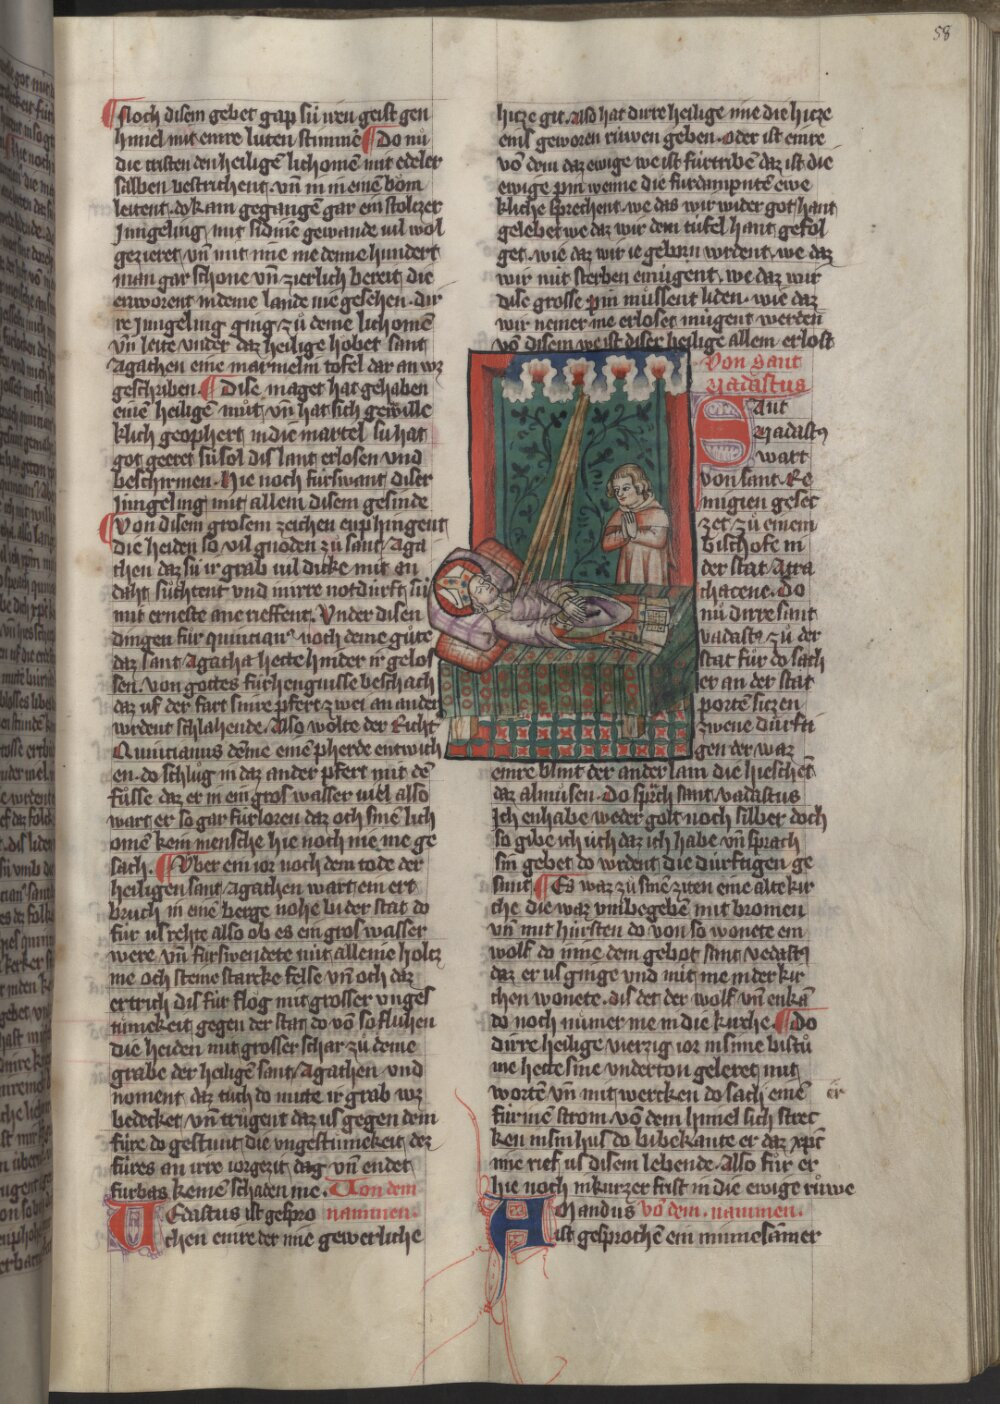 58
Noch disem gebet gap sü iren geist gen
himel mit einre luten stimmē Do nū
die cristen den heiligē lichomen mit edeler
salben bestrichent. vn̄ in in einē bom
leitent. do kam gegangē gar ein stoltzer
Jungeling mit sidinē gewande vil wol
gezieret vn̄ mit ime me denne hundert
man gar schone vn̄ zierlich bereit die
enworent in deme lande nie gesehen. dir
re Jungeling ging zů deme lichomē
vn̄ leite vnder daz heilige hobet sant
Agathen eine marmelin tofel dar an wz
geschriben. Dise maget hat gehaben
einē heiligē můt vn̄ hat sich gewille
klich geophert in die martel sü hat
got geeret sü sol dis lant erlosen vnd
beschirmen. Hie noch fürswant diser
Jungeling mit allem disem gesinde
Von disem grosem zeichen enphingent
die heiden so vil gnoden zů sant Aga
then daz sü ir grab vil dicke mit an
daht sůchtent vnd in irre notdurft sü
mit erneste ane rieffent. Vnder disen
dingen für quincian⁹ noch deme gůte
daz sant Agatha hette hinder ir gelos
sen. von gottes fürhengnisse beschach
daz uf der fart sinre pfert zwei an ander
wrdent schlahende. Also wolte der Richt
Quincianus deme einē pherde entwich
en. do schlůg in daz ander pfert mit dē
fůsse daz er in ein gros wasser viel also
wart er so gar fürloren daz och sinē lich
omē kein mensche hie noch nie me ge
sach. Vber ein ior noch dem tode der
heiligen sant Agathen wart ein ert
bruch in einē berge nohe bi der stat do
für us rehte also ob es ein gros wasser
were vn̄ fürswendete nüt alleine holtz
me och steine starcke felse vn̄ och daz
ertrich dis für flog mit grosser vnges
tümekeit gegen der stat do vō so fluhen
die heiden mit grosser schar zů deme
grabe der heiligē sant Agathen vnd
noment daz tůch do mitte ir grab wz
bedecket vn̄ trůgent daz us gegen dem
füre do gestunt die vngestümekeit dez
füres an irre iorgezit dag vn̄ endet
fürbas keinē schaden me. Von dem
VEdastus ist gespro nammen.
chen einre der me gewerliche
hitze git. Also hat dirre heilige me die hitze
eins geworen rüwen geben. Oder ist einre
vō dem daz ewige we ist fürtriben daz ist die
ewige pin wenne die fürdampnetē ewe
kliche sprechent. we das wir wider got hant
gelebet we daz wir dem tüfel hant gefol
get. wie daz wir ie geborn wrdent. we daz
wir nüt sterben enmügent. we daz wir
dise grosse pin müssent liden. wie daz
wir nemer me erloset mügent werden
vō disem we ist diser heilige allem erlost
Von sant
Vadastus
Sant
Vadast⁹
wart
von sant. Re
migien geset
zet. zů einem
Bischofe in
der stat Atra
thacene. Do
nů dirre sant
vadast⁹ zů der
stat für do sach
er an der stat
porte sitzen
zwene dürfti
gen der waz
einre blint der ander lam die hieschēt
daz almůsen. Do sprch sant vadastus
Ich enhabe weder golt noch silber doch
so gibe ich üch daz ich habe vn̄ sprach
sin gebet do wrdent die dürftigen ge
sunt Es waz zů sinē ziten eine alte kir
che die waz vmbegeben mit bromen
vn̄ mit hürsten do von so wonete ein
wolf do inne dem gebot sant vedast⁹
daz er us ginge vnd nüt me in der kir
chen wonete. dis det der wolf vn̄ enkā
do noch nūmer me in die kirche. Do
dirre heilige vierzig ior in sime bistů
me hette sine vnderton geleret mit
wortē vn̄ mit wercken do sach einē er
fürinē strom vō dem himel sich strec
ken in sin hus do bi bekante er daz xp̄c
ime rief us disem lebende. Also für er
hie noch in kurzer frist in die ewige rüwe
AMandus vō dem. nammen.
ist gesprochē ein minnesāmer